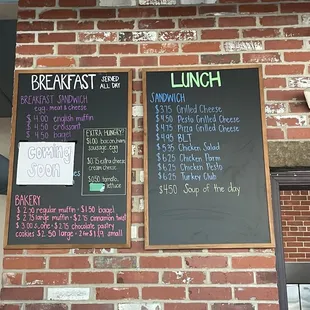 BREAKFAST SERVED ALL DAY
BREAKFAST SANDWICH
egg, meat & cheese
$ 4.00 english muffin
$ 4.50 croissant
$ 4.50 bagel
COMING
SOON
EXTRA HUNGRY?
$1.00 bacon/ham/
sausage/egg
$0.75 extra cheese
cream cheese
$0.50
lettuce
BAKERY
$ 2.50 regular muffin $1.50 bagel
$ 2.75 large muffin $2.75 cinnamon twist
$ 2.50 brownie $2.75 chocolate croissant
cookies $2.50 large small
LUNCH
SANDWICH
$3.75 Grilled Cheese
$4.50 Pesto Grilled Cheese
$4.75 Pizza Grilled Cheese
$4.95 BLT
$5.95 Chicken Salad
$6.25 Chicken Parm
$6.25 Chicken Pesto
$6.25 Turkey Club
$4.50 Soup of the day